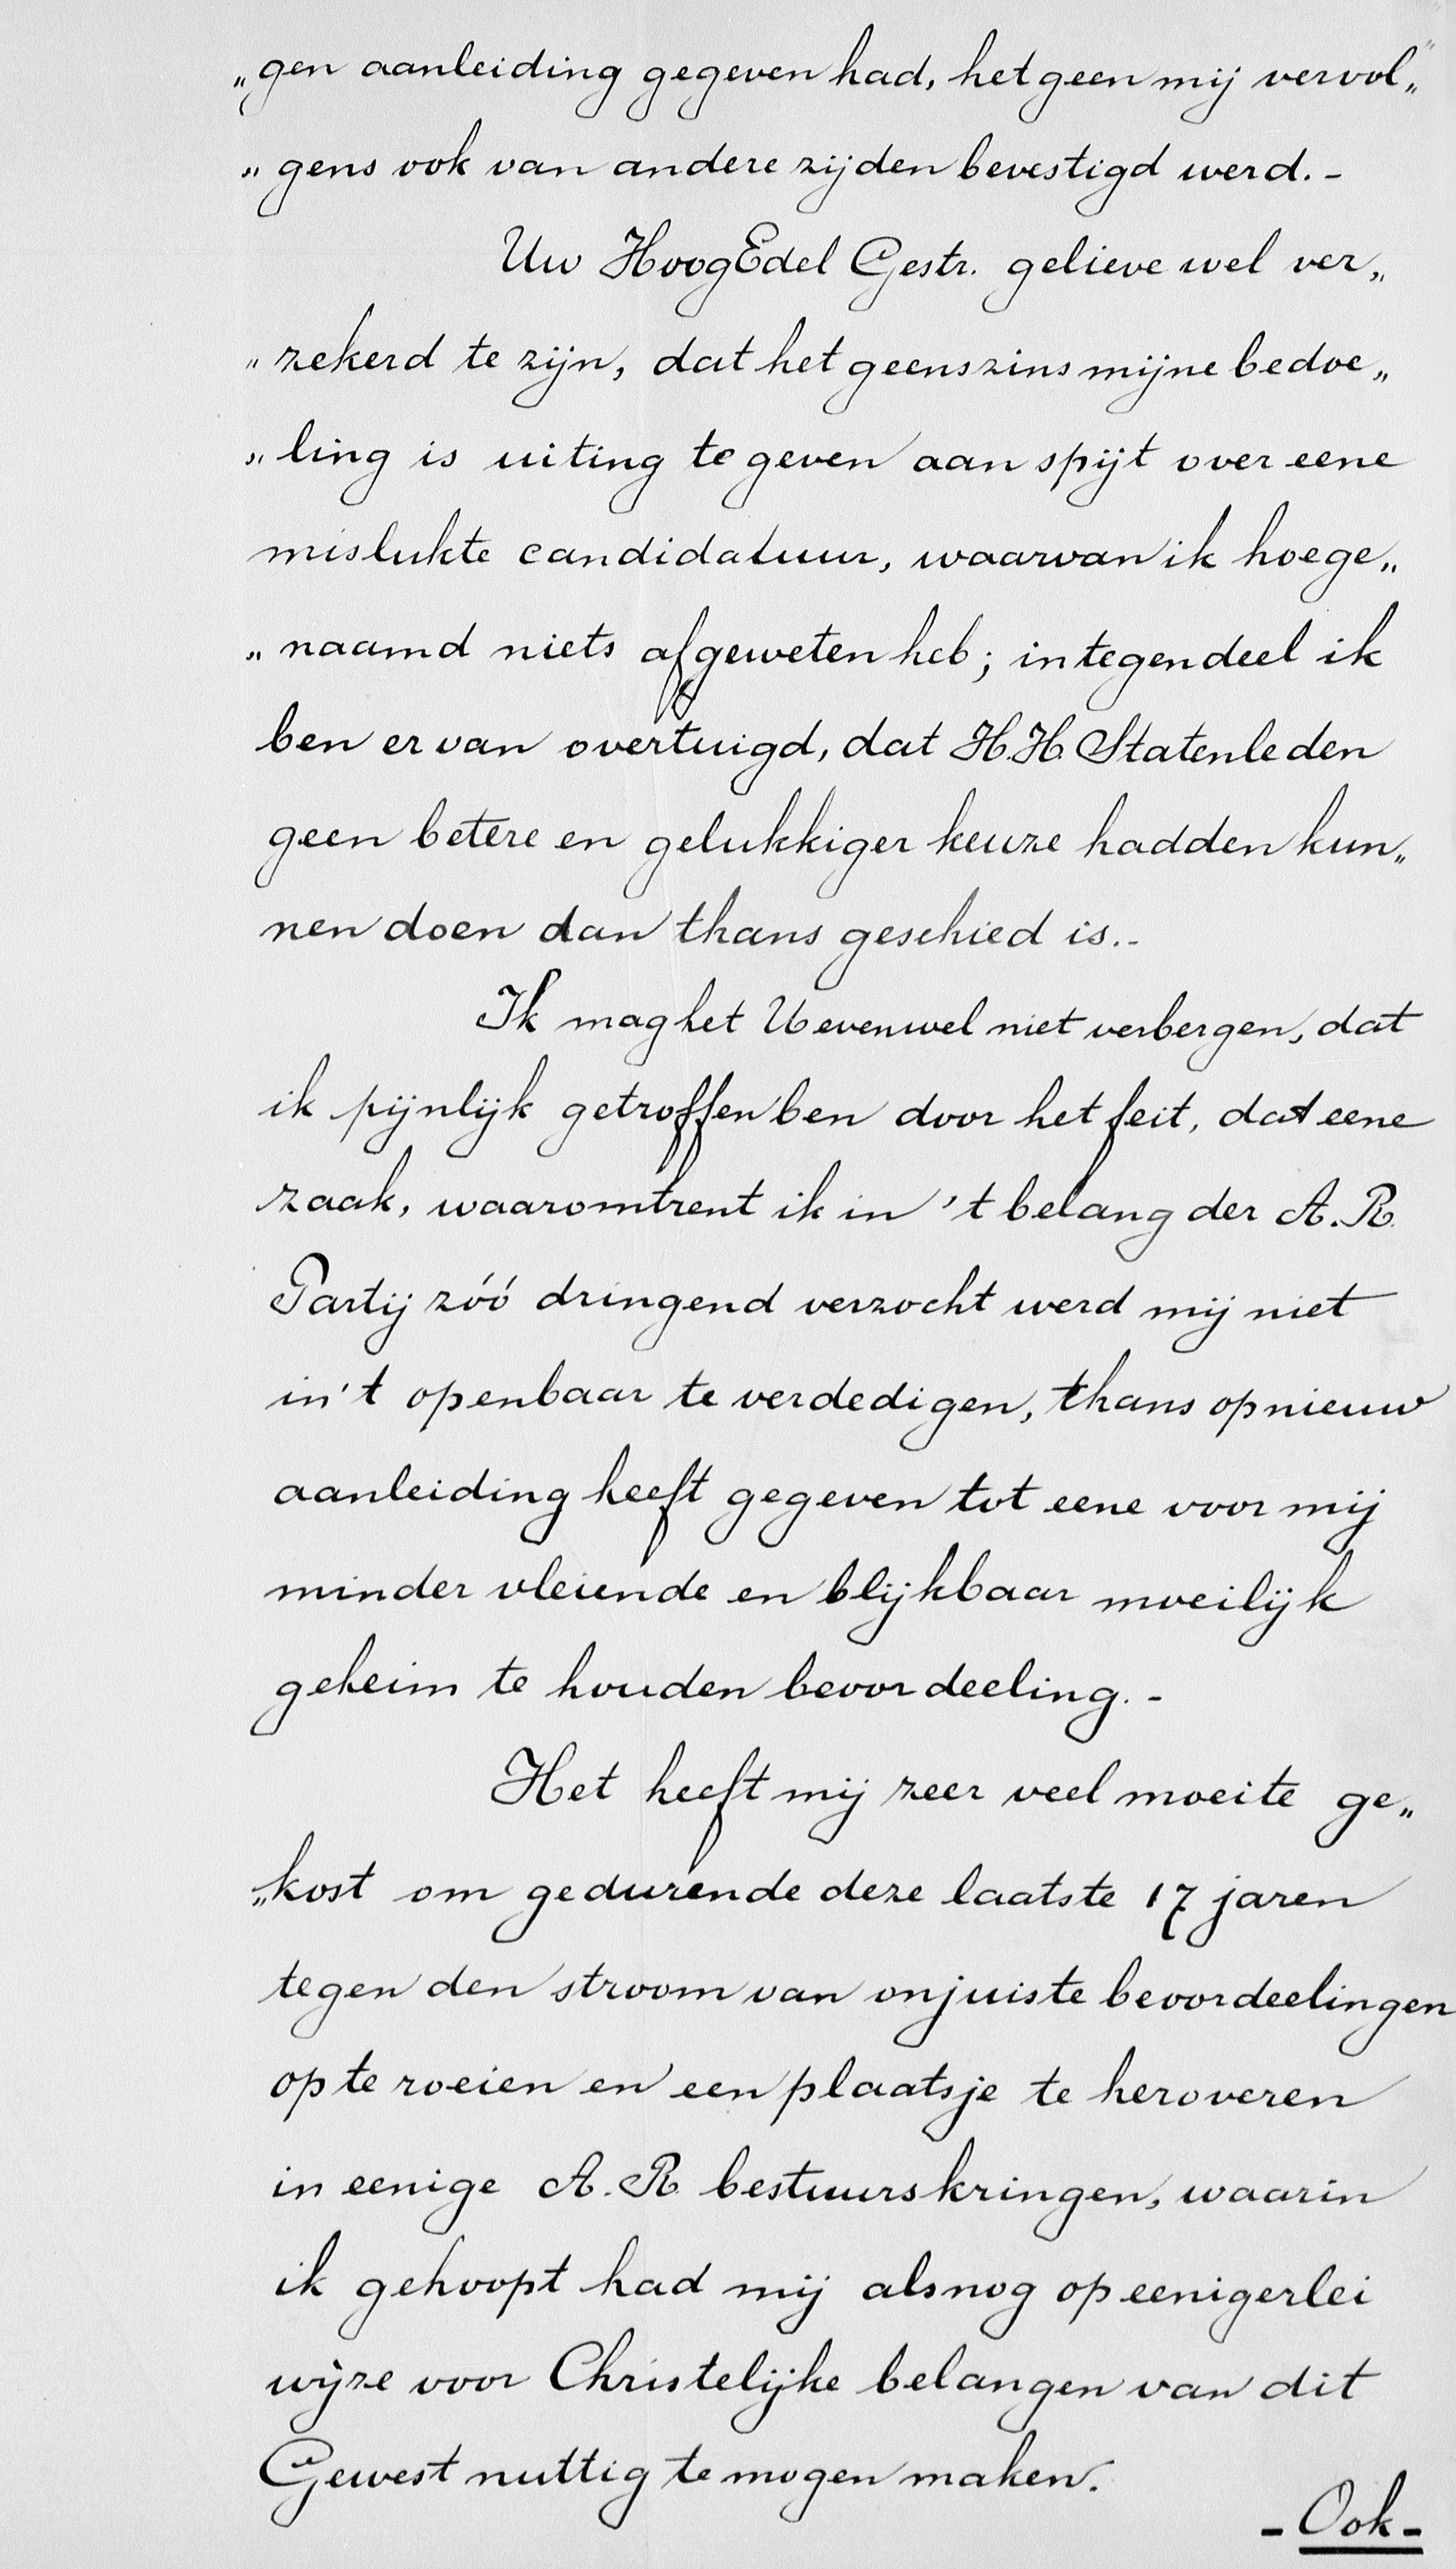 „gen aanleiding gegeven had, hetgeen mij vervol„
„gens ook van andere zijden bevestigd werd. -
Uw HoogEdel Gestr. gelieve wel ver„
„zekerd te zijn, dat het geenszins mijne bedoe„
„ling is uiting te geven aan spijt over eene
mislukte candidatuur, waarvan ik hoege„
„naamd niets afgeweten heb; integendeel ik
ben ervan overtuigd, dat H.H. Statenleden
geen betere en gelukkiger keuze hadden kun„
nen doen dan thans geschied is. -
Ik mag het U evenwel niet verbergen, dat
ik pijnlijk getroffen ben door het feit, dat eene
zaak, waaromtrent ik in 't belang der A.R.
Partij zóó dringend verzocht werd mij niet
in 't openbaar te verdedigen, thans opnieuw
aanleiding heeft gegeven tot eene voor mij
minder vleiende en blijkbaar moeilijk
geheim te houden beoordeeling. -
Het heeft mij zeer veel moeite ge„
„kost om gedurende deze laatste 17 jaren
tegen den stroom van onjuiste beoordeelingen
op te roeien en een plaatsje te heroveren
in eenige A.R. bestuurskringen, waarin
ik gehoopt had mij alsnog op eenigerlei
wijze voor Christelijke belangen van dit
Gewest nuttig te mogen maken.
- Ook -